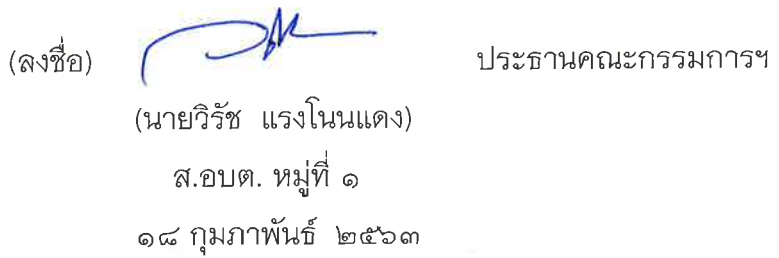 (ลงชื่อ) ประธานคณะกรรมการฯ
(นายวิรัช แรงโนนแดง)
ส.อบต. หมู่ที่ ๑
๑๘ กุมภาพันธ์ ๒๕๖๓